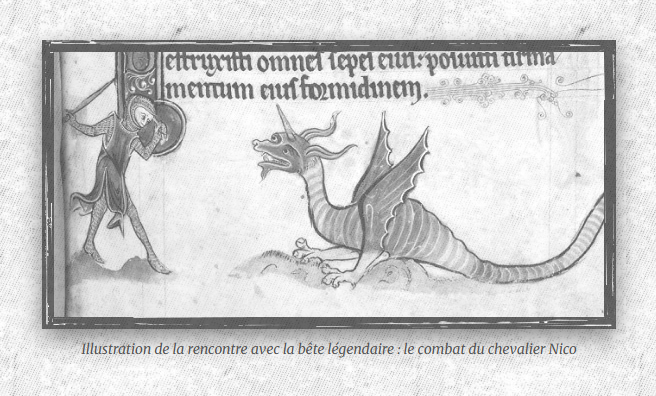 estruxisti omnes sepes eius: posuisti firma
mentum eius formidinem.
Illustration de la rencontre avec la bête légendaire : le combat du chevalier Nico